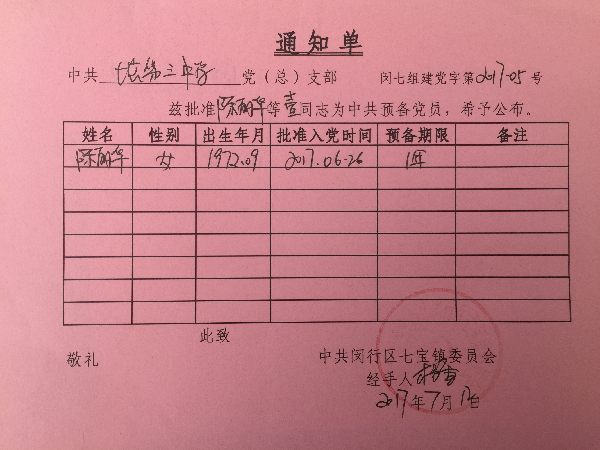 通知单
中共 第三中学 党（总）支部 闵七组建党字第2017-05号
兹批准陈丽华等壹同志为中共预备党员，希予公布。
姓名 性别 出生年月 批准入党时间 预备期限 备注
陈丽华 女 1972.09 2017.06-26 1年
此致
敬礼
中共闵行区七宝镇委员会
经手人
2017年7月17日